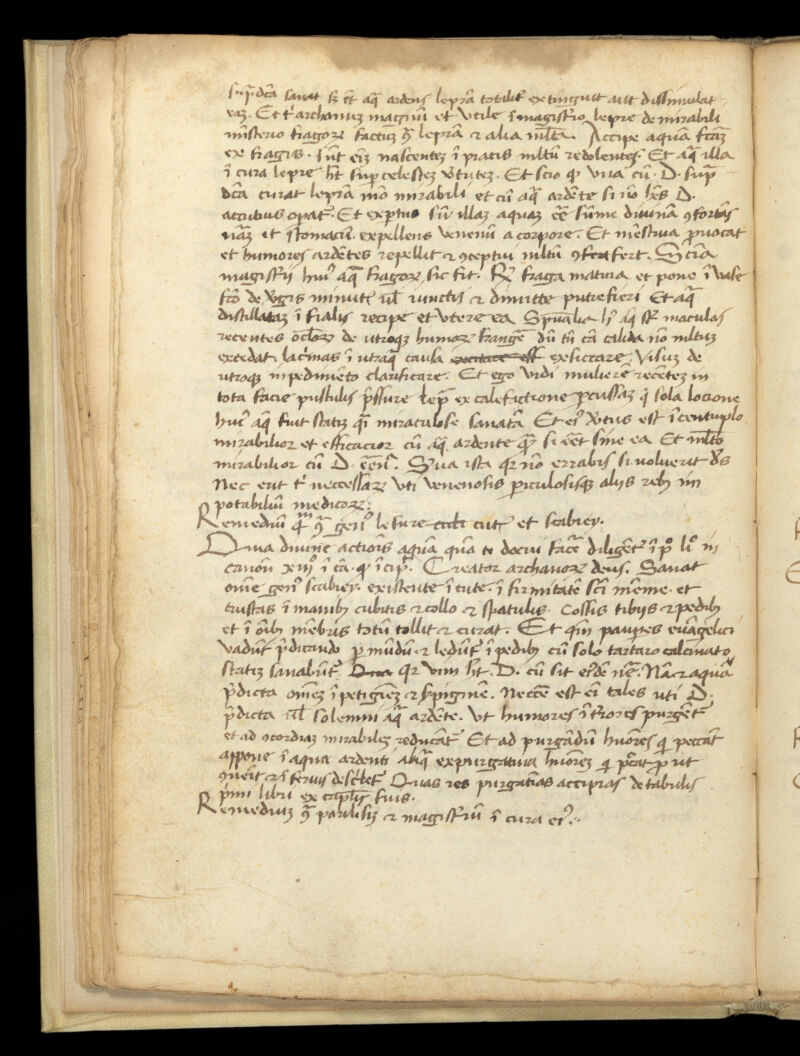 sup̄dc̄a sanat sꝫ et̄ aq̄ ardens leprā totalit̄ extinguit aut dissimulat
eaꝫ. Et t' archanuꝫ magnū et Utile ī magist̄io lepre de mirabili
mīsterio fragoꝝ factuꝫ ꝯ̄ leprā ⁊ alia ml̄ta. Accipe aquā fcām
ex fragis. sūt eī nascentes ī pratis mltū redolentes. Et aq̄ illa
ī cura lepre ht̄ sup celestes v̄tutes. Et scio qꝫ una cū .D. sup̄
dc̄a curat leprā mō mirabili et cū aq̄ ardēte si nō hēs D.
accutius opat̄. Et exp̄tus sū illaꝫ aquaꝫ eē sūme diuinā ꝯfortās
et stomacū. expellens uenenū a corpore. Et mēstrua p̄uocat
et humores ardētes repellit ⁊ ꝯceptui mltū ꝯfert. Sc̄ia
magisterij huiꝰ aq̄ fragoꝝ sic fit. R̄ fraga matura et pone ī uase
fcō de uitrijs minut̄ ul̄ iunctis ⁊ dimitte putrefieri Et aq̄
distillataꝫ ī fialis recipe et utere ea ht̄ aq̄ maculas
recentes ocl̄oꝝ de utroqꝫ humoꝝ frangē dū tn̄ cā calida nō mltuꝫ
excedat. lac̄imas ī utraqꝫ causa exsiccare. Visuꝫ de
utroqꝫ inpedimēto clarificare. Et ego uidi mulierē recētes in
tota facie pustulis p̄ssure lep̄ ex calefactione percussaꝫ q̄ sola locione
huiꝰ aq̄ fuit statiꝫ q̄i miraculose sanata Et eiꝰ v̄tus est ī centuplo
mirabilior et efficacior cū aq̄ ardente qꝫ si eēt sine ea Et ml̄to
mirabilior cū D. Sua ista qꝛ nō errabis si uoluerit ds̄
Nec erit t' neccessariꝫ uti uenenosis piculosisqꝫ alijs rebꝫ
potabiliū medicoꝝ.
Remediū ꝯ̄ genꝰ lesure cut' et scabiey.
Qua diuine actiōis aquā quā te docui facē diligēt̄ ī pº liº in
canōn xiijº ī ca. Creator archanoꝝ deus. Sanat
ōme genꝰ scabiey. existente ī cute. ī firmitatē et
crustas ī manibꝫ cubitis ⁊ collo ⁊ spatulis. costis tibijs ⁊ pedibꝫ
et ī oībꝫ mēbris totū tollit ⁊ curat. Et qm̄ paupes euāgelici
uadūt p̄dicando p mūdū ⁊ ledūt' ī pedibꝫ cū solo tartaro calcinato
statiꝫ sanabūt'. qꝛ uim ht̄ .D. cū sit eiꝰdē nē. Nā ⁊ aquā
p̄dicta om̄eꝫ īpetigineꝫ ⁊ s̄pigine. Neccē est eī tales uti D.
p̄dicta ul̄ solemni aq̄ ardēte. Ut humores īt̄iores purgēt'
et ad ꝯcordiaꝫ mirabileꝫ reducāt' Et ad purgādū hūores q̄ peccāt
appone ī aqua ardenti aliq̄ expurgatiua hūoreꝫ q̄ pc̄cat put
ꝯuēit Quas res purgatiuas accipias de tabulis
p̄mi libri ex suis.
Remediuꝫ ꝯ̄ paralisiꝫ ⁊ magist̄iū ī cura eiꝰ.